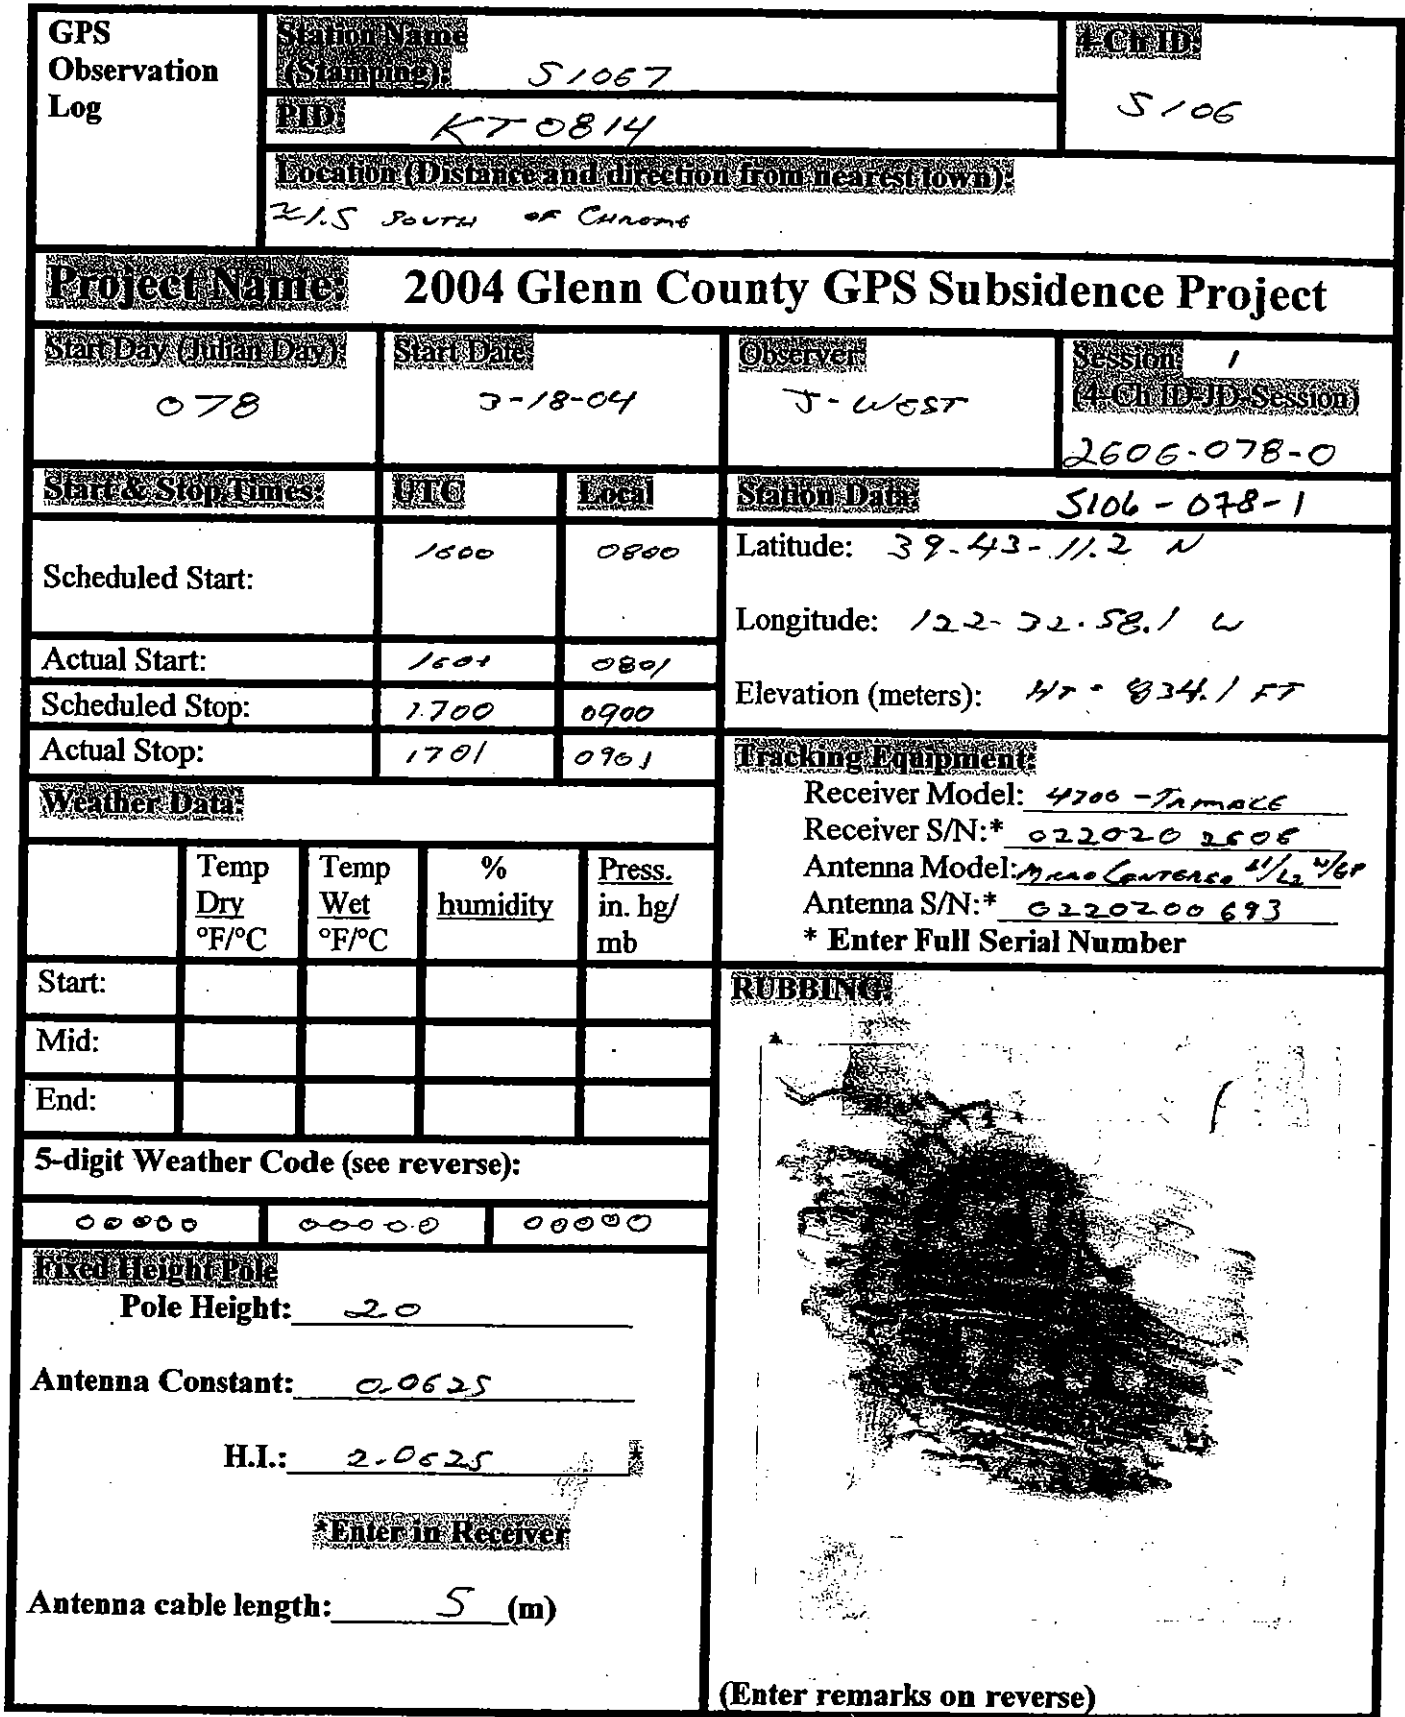 GPS
Observation
Log
Station Name
(Stamping): S1067
4-Ch ID:
S106
PID: KT0814
Location (Distance and direction from nearest town):
≈1.5 SOUTH OF CHROME
Project Name: 2004 Glenn County GPS Subsidence Project
Start Day (Julian Day):
078
Start Date:
3-18-04
Observer:
J-WEST
Session: 1
(4-Ch ID-JD-Session)
2606-078-0
Start & Stop Times: UTC Local
Station Data: S106-078-1
Scheduled Start: 1600 0800
Latitude: 39-43-11.2 N
Longitude: 122-32-58.1 W
Actual Start: 1601 0801
Scheduled Stop: 1700 0900
Elevation (meters): HT = 834.1 FT
Actual Stop: 1701 0901
Tracking Equipment:
Receiver Model: 4700-TRIMBLE
Receiver S/N:* 022020 2606
Antenna Model: MICRO CENTERED L1/L2 W/GP
Antenna S/N:* 0220200693
* Enter Full Serial Number
Weather Data:
Temp
Dry
°F/°C
Temp
Wet
°F/°C
%
humidity
Press.
in. hg/
mb
Start:
Mid:
End:
5-digit Weather Code (see reverse):
00000 00000 00000
Fixed Height Pole
Pole Height: 2.0
Antenna Constant: 0.0625
H.I.: 2.0625 *
*Enter in Receiver
Antenna cable length: 5 (m)
RUBBING:
(Enter remarks on reverse)